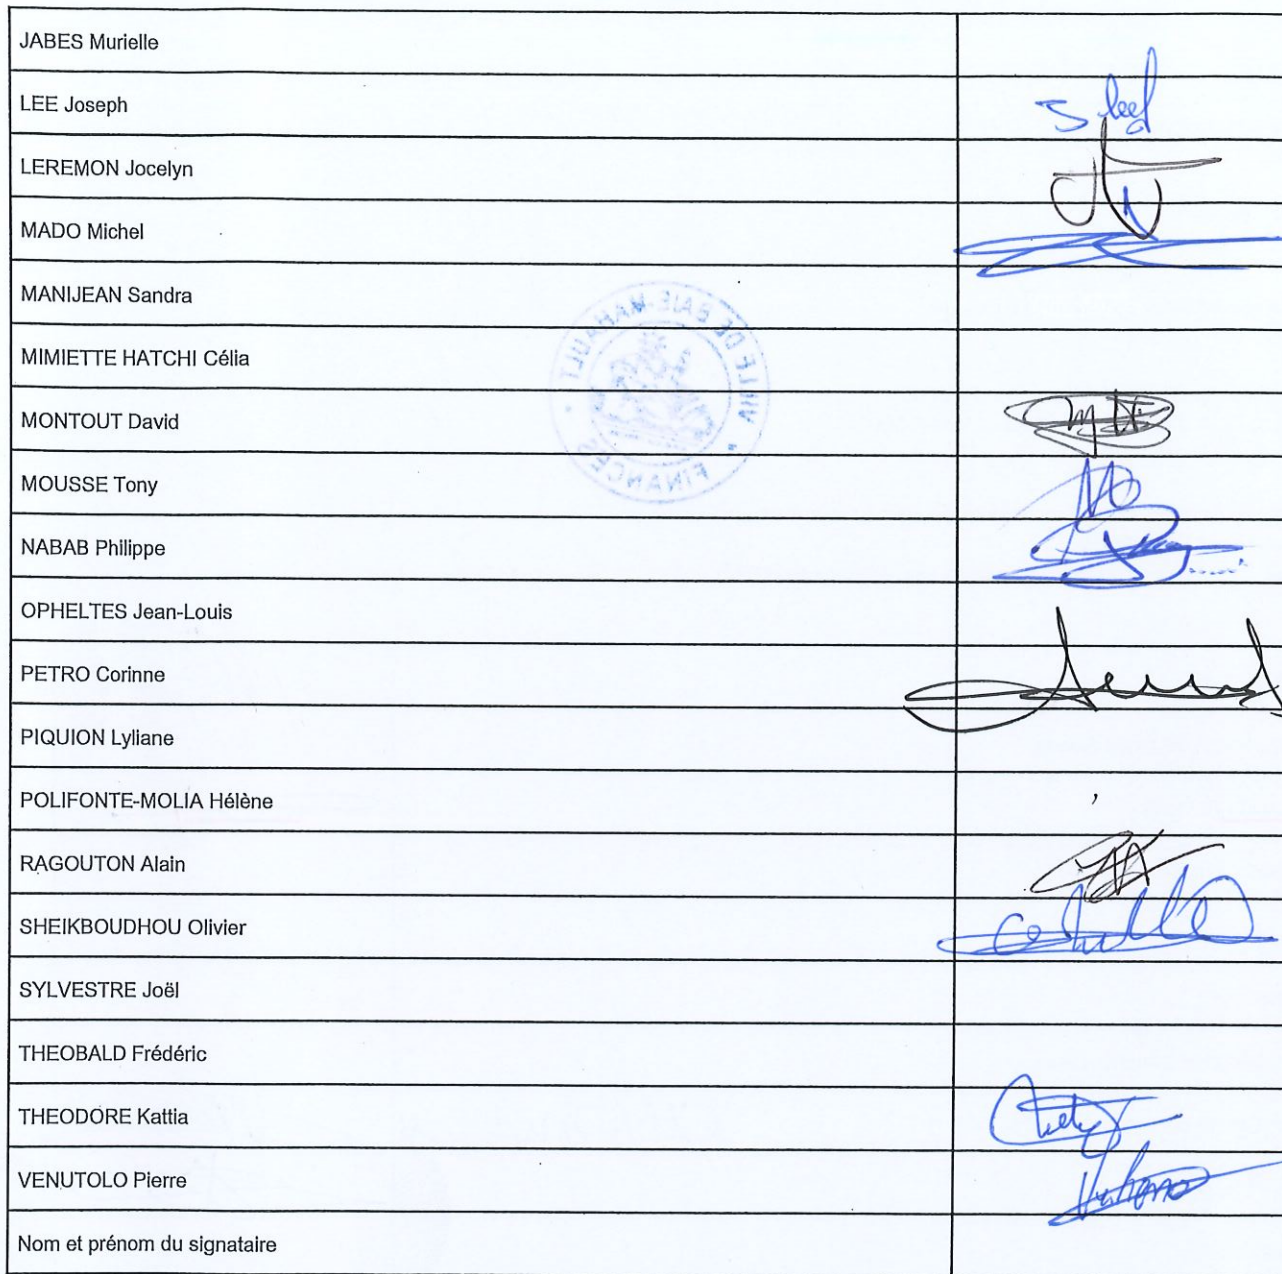 JABES Murielle
LEE Joseph
LEREMON Jocelyn
MADO Michel
MANIJEAN Sandra
VILLE DE BAIE-MAHAULT
MIMIETTE HATCHI Célia
MONTOUT David
FINANCES
MOUSSE Tony
NABAB Philippe
OPHELTES Jean-Louis
PETRO Corinne
PIQUION Lyliane
POLIFONTE-MOLIA Hélène
RAGOUTON Alain
SHEIKBOUDHOU Olivier
SYLVESTRE Joël
THEOBALD Frédéric
THEODORE Kattia
VENUTOLO Pierre
Nom et prénom du signataire